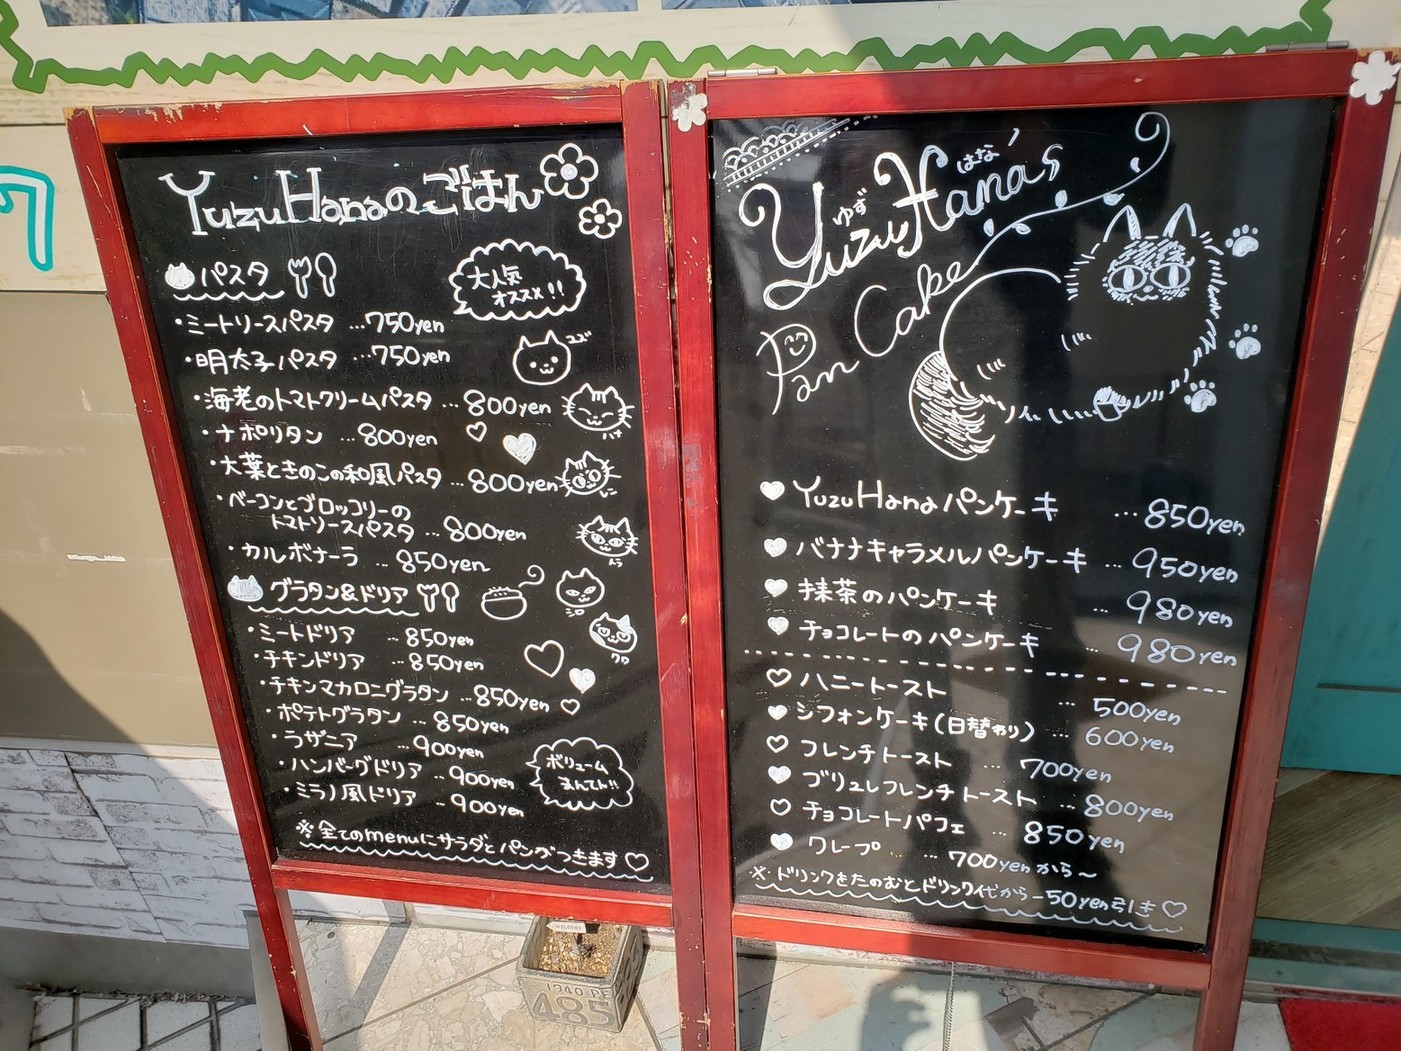 YuzuHanaのごはん
パスタ
大人気
オススメ!!
・ミートソースパスタ …750yen
・明太子パスタ …750yen
ユズ
・海老のトマトクリームパスタ …800yen
ハナ
・ナポリタン …800yen
・大葉ときのこの和風パスタ …800yen
・ベーコンとブロッコリーの
トマトソースパスタ …800yen
トラ
・カルボナーラ … 850yen
グラタン&ドリア
シロ
・ミートドリア … 850yen
・チキンドリア … 850yen
クロ
・チキンマカロニグラタン …850yen
・ポテトグラタン … 850yen
・ラザニア … 900yen
・ハンバーグドリア …900yen
・ミラノ風ドリア …900yen
ボリューム
まんてん!!
※全てのmenuにサラダとパンがつきます♡
ゆず はな
YuzuHana's
Pan Cake
♥ YuzuHanaパンケーキ …850yen
♥ バナナキャラメルパンケーキ …950yen
♥ 抹茶のパンケーキ … 980yen
♥ チョコレートのパンケーキ … 980yen
♡ ハニートースト … 500yen
♥ シフォンケーキ(日替わり) … 600yen
♡ フレンチトースト … 700yen
♥ ブリュレフレンチトースト … 800yen
♡ チョコレートパフェ … 850yen
♥ クレープ … 700yenから〜
※ドリンクをたのむとドリンク代から-50yen引き♡
1940 PE
485